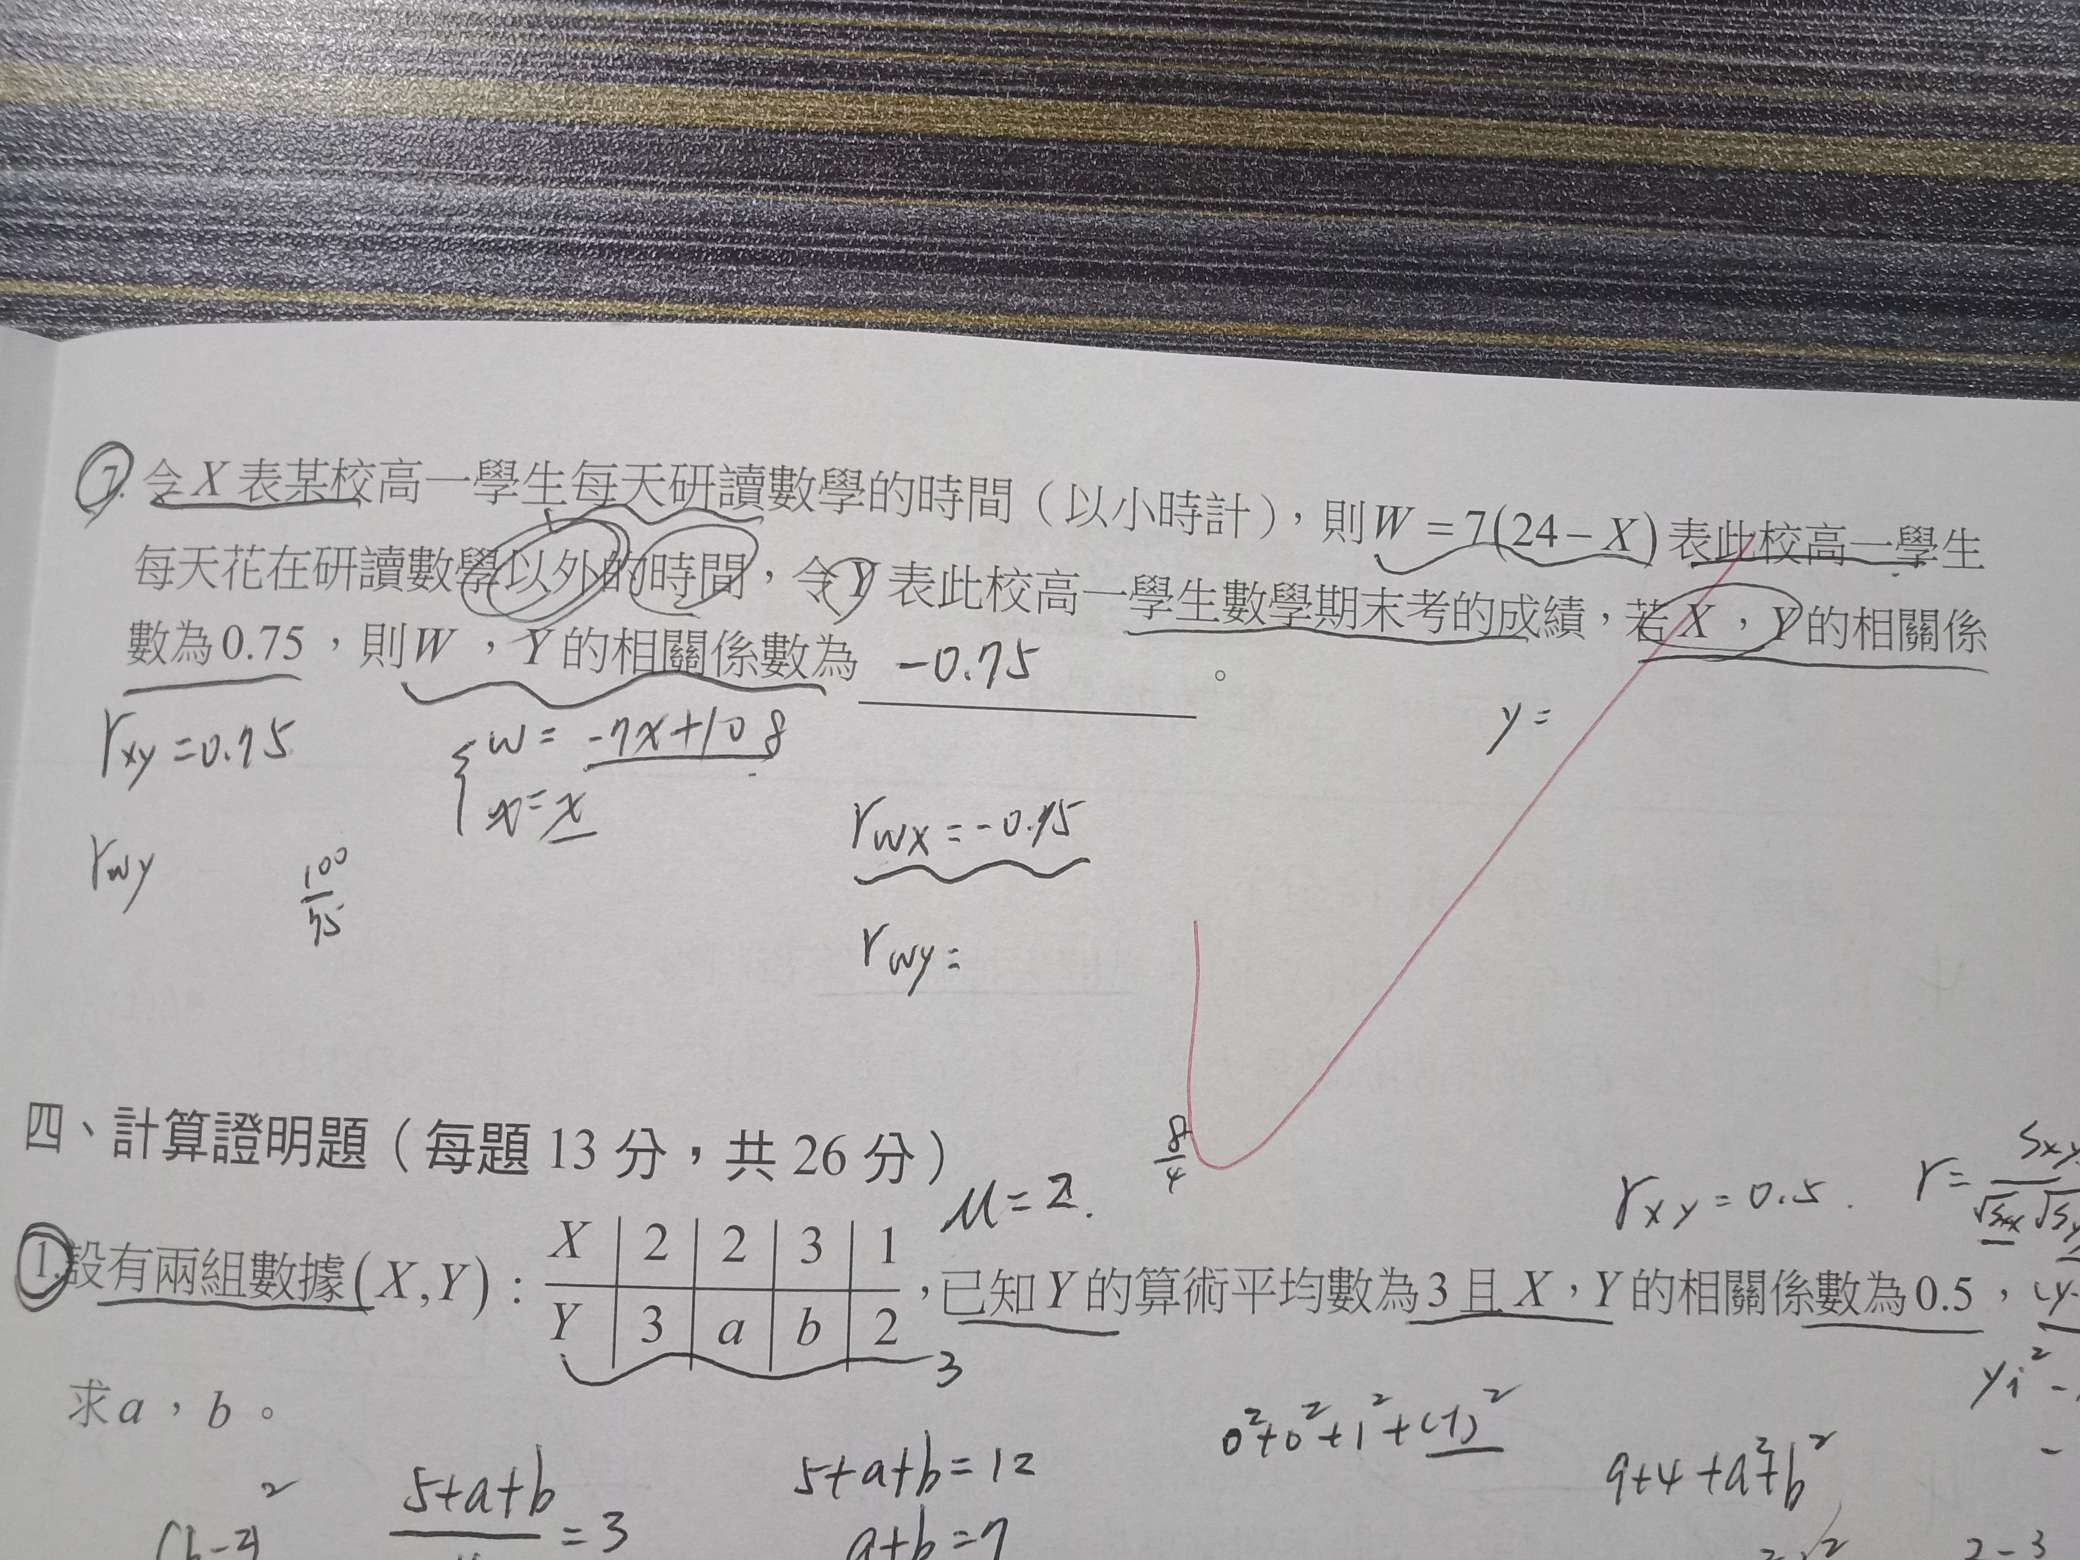 7. 令 X 表某校高一學生每天研讀數學的時間（以小時計），則 W = 7(24 − X) 表此校高一學生
每天花在研讀數學以外的時間，令 Y 表此校高一學生數學期末考的成績，若 X，Y 的相關係
數為 0.75，則 W，Y 的相關係數為 -0.75 。
y =
r_xy = 0.75
w = -7x+108
x = x
r_wx = -0.75
r_wy
100/75
r_wy =
8/4
四、計算證明題（每題 13 分，共 26 分）
μ = 2.
r_xy = 0.5 .
1. 設有兩組數據 (X,Y)：
X 2 2 3 1
Y 3 a b 2
，已知 Y 的算術平均數為 3 且 X，Y 的相關係數為 0.5，
3
求 a，b。
0²+0²+1²+(-1)²
5+a+b
= 3
5+a+b=12
9+4+a²+b²
a+b=7